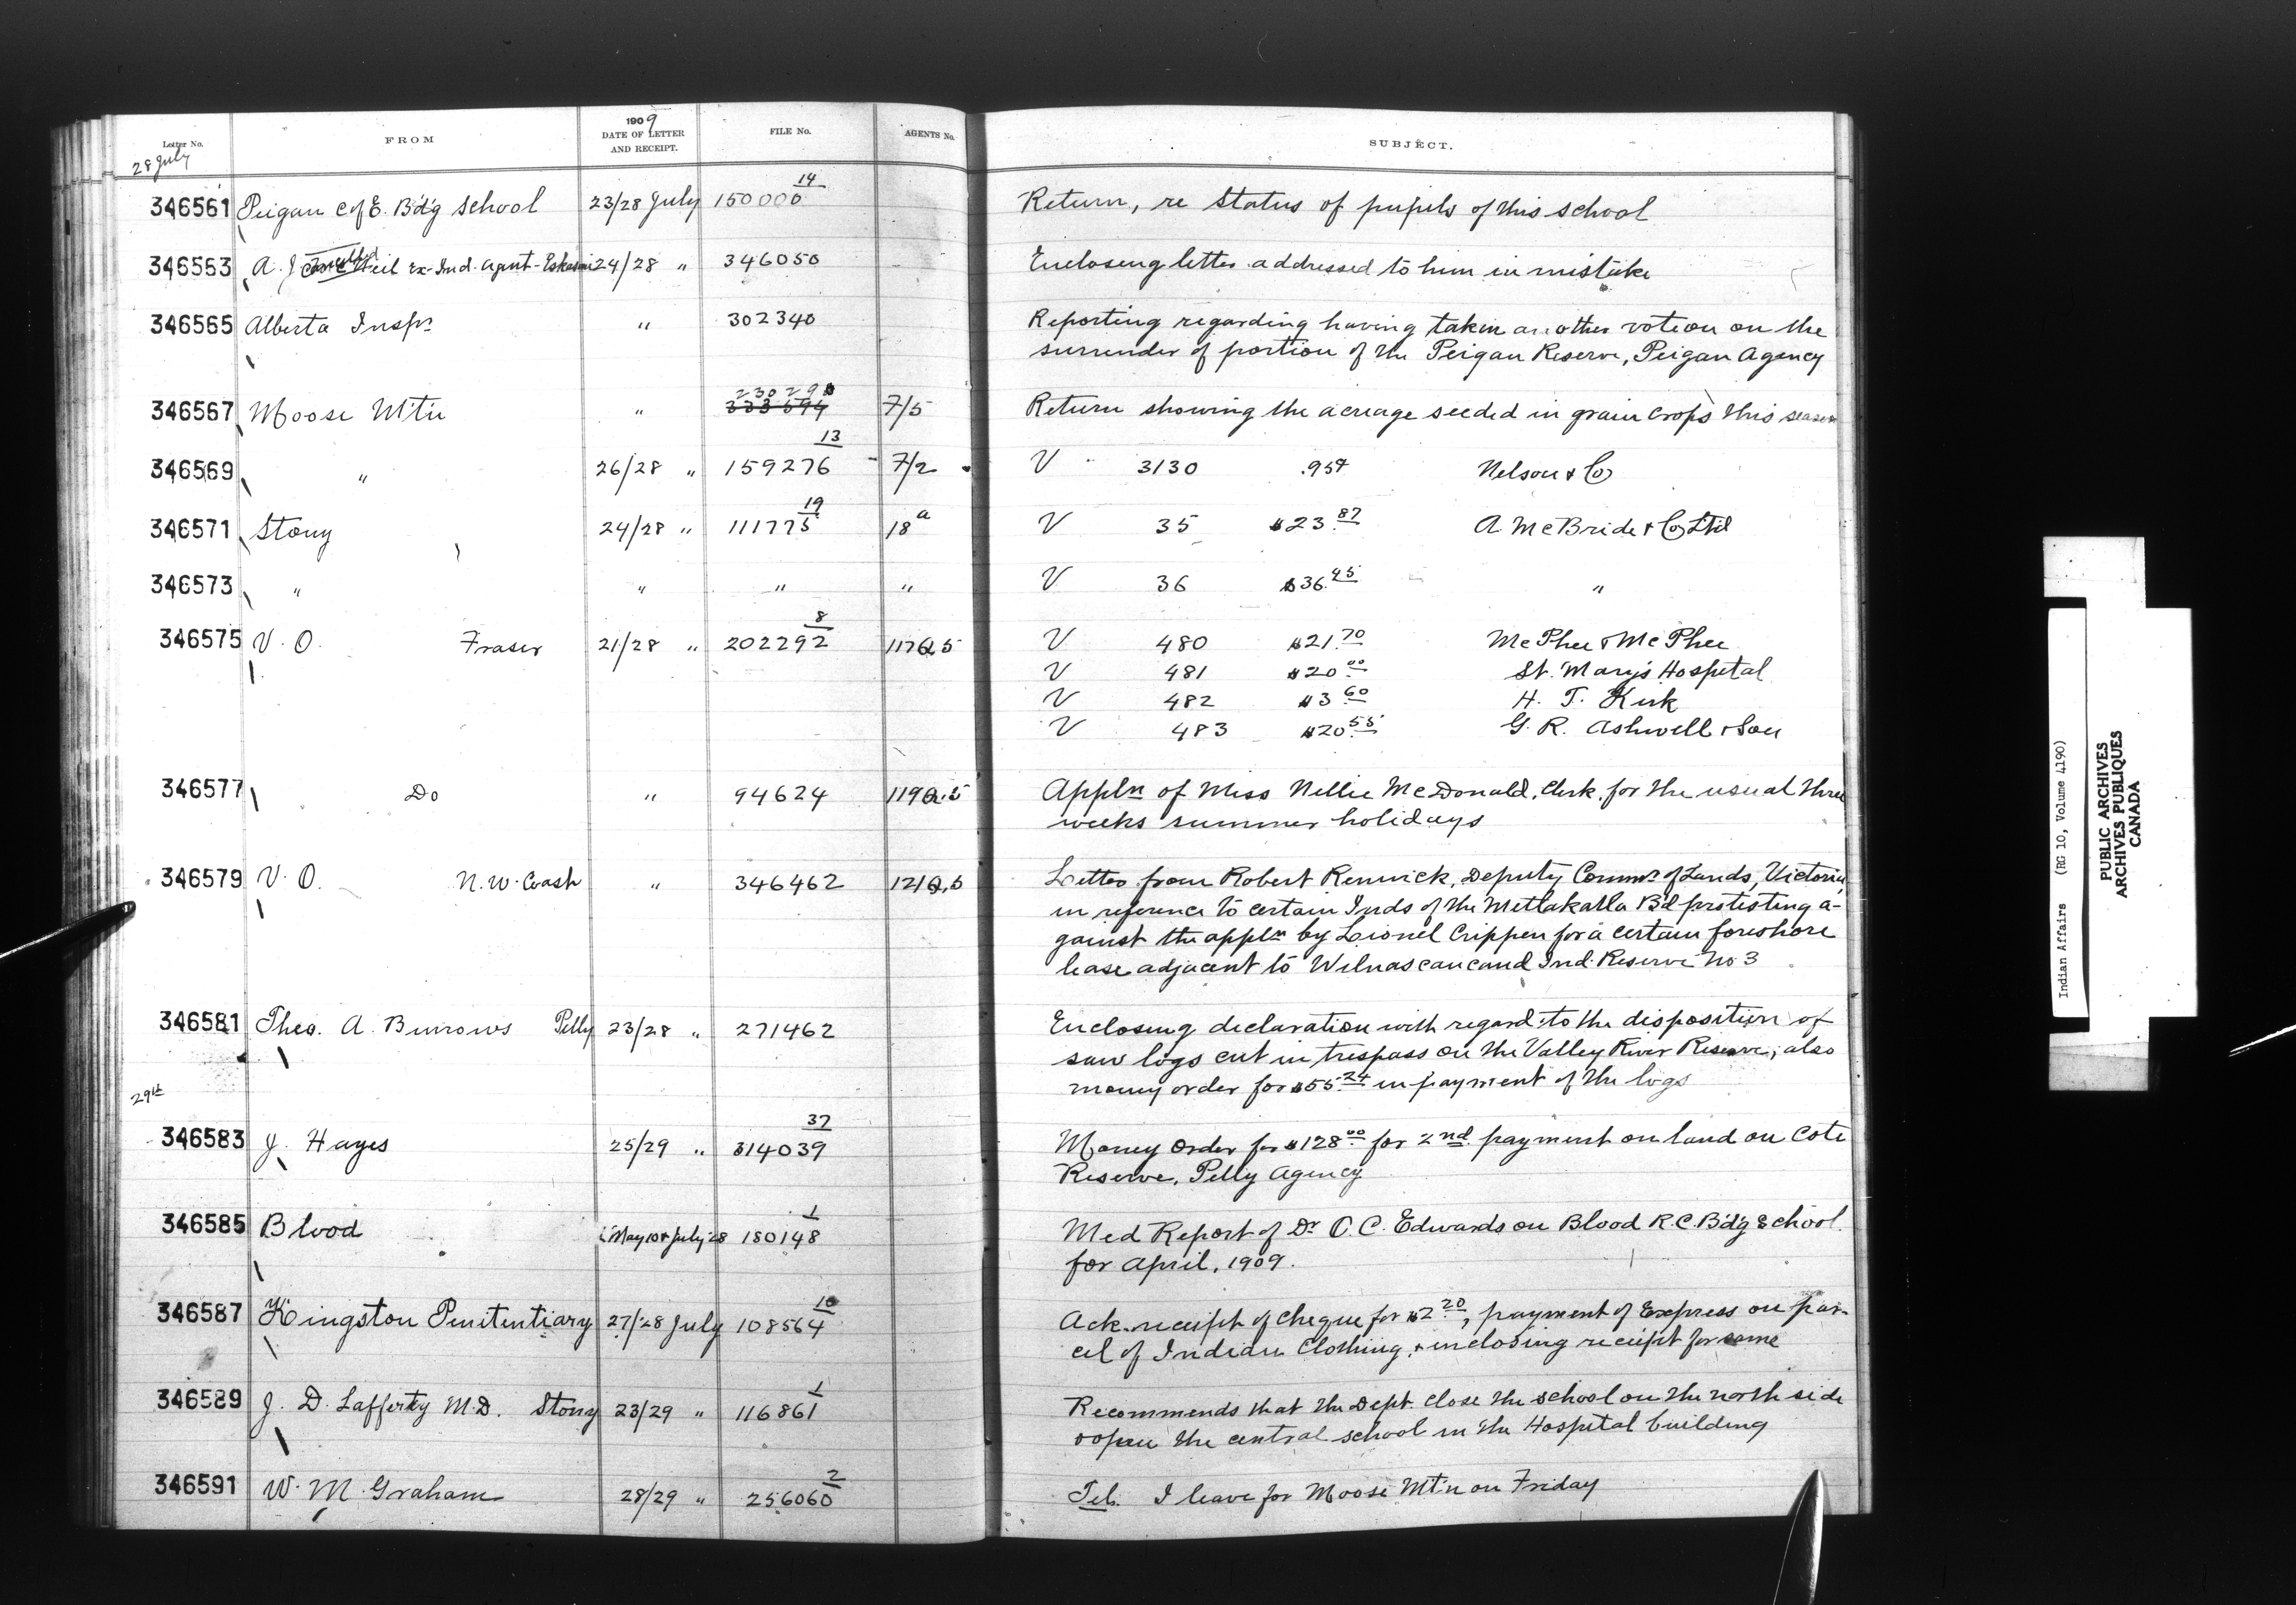 Letter No. FROM 1909 DATE OF LETTER AND RECEIPT. FILE No. AGENTS No. SUBJECT.
28 July
346561 Peigan C of E. Bd'g School 23/28 July 150000 14 Return, re Status of pupils of this school
346563 A. J. Ex-Ind. Agent - Eskasoni 24/28 " 346050 Enclosing letter addressed to him in mistake
346565 Alberta Inspr " 302340 Reporting regarding having taken another vote on the
surrender of portion of the Peigan Reserve, Peigan Agency
346567 Moose Mt'n " 230290 333594 7/5 Return showing the acreage seeded in grain crops this season
346569 " 26/28 " 159276 13 7/2 V 3130 .95¢ Nelson & Co
346571 Stony 24/28 " 111775 19 18a V 35 $23.87 A McBride & Co Ltd
346573 " " " " V 36 $36.45 "
346575 V. O. Fraser 21/28 " 202292 8 117Q.5 V 480 $21.70 McPhee & McPhee
V 481 $20.00 St. Mary's Hospital
V 482 $3.60 H. T. Kirk
V 483 $20.55 G. R. Ashwell & Son
346577 Do " 94624 119Q.5 Appln of Miss Nellie McDonald, Clerk, for the usual three
weeks summer holidays
346579 V. O. N. W. Coast " 346462 121Q.5 Letter from Robert Renwick, Deputy Commr of Lands, Victoria,
in reference to certain Inds of the Metlakatla Bd protesting a-
gainst the appln by Lionel Crippen for a certain foreshore
lease adjacent to Wilnascancand Ind. Reserve No 3
346581 Theo. A. Burrows Pelly 23/28 " 271462 Enclosing declaration with regard to the disposition of
saw logs cut in trespass on the Valley River Reserve, also
money order for $55.24 in payment of the logs
29th
346583 J. Hayes 25/29 " 314039 37 Money Order for $128.00 for 2nd payment on land on Cote
Reserve, Pelly Agency
346585 Blood May 10 & July 28 180148 1 Med Report of Dr O. C. Edwards on Blood R.C. Bd'g School
for April, 1909.
346587 Kingston Penitentiary 27/28 July 108564 10 Ack. receipt of cheque for $2.20, payment of Express on par-
cel of Indian Clothing, & inclosing receipt for same
346589 J. D. Lafferty M.D. Stony 23/29 " 116861 1 Recommends that the Dept. close the school on the north side
& open the central school in the Hospital building
346591 W. M. Graham 28/29 " 256060 2 Tel. I leave for Moose Mt'n on Friday
Indian Affairs (RG 10, Volume 4190)
PUBLIC ARCHIVES
ARCHIVES PUBLIQUES
CANADA